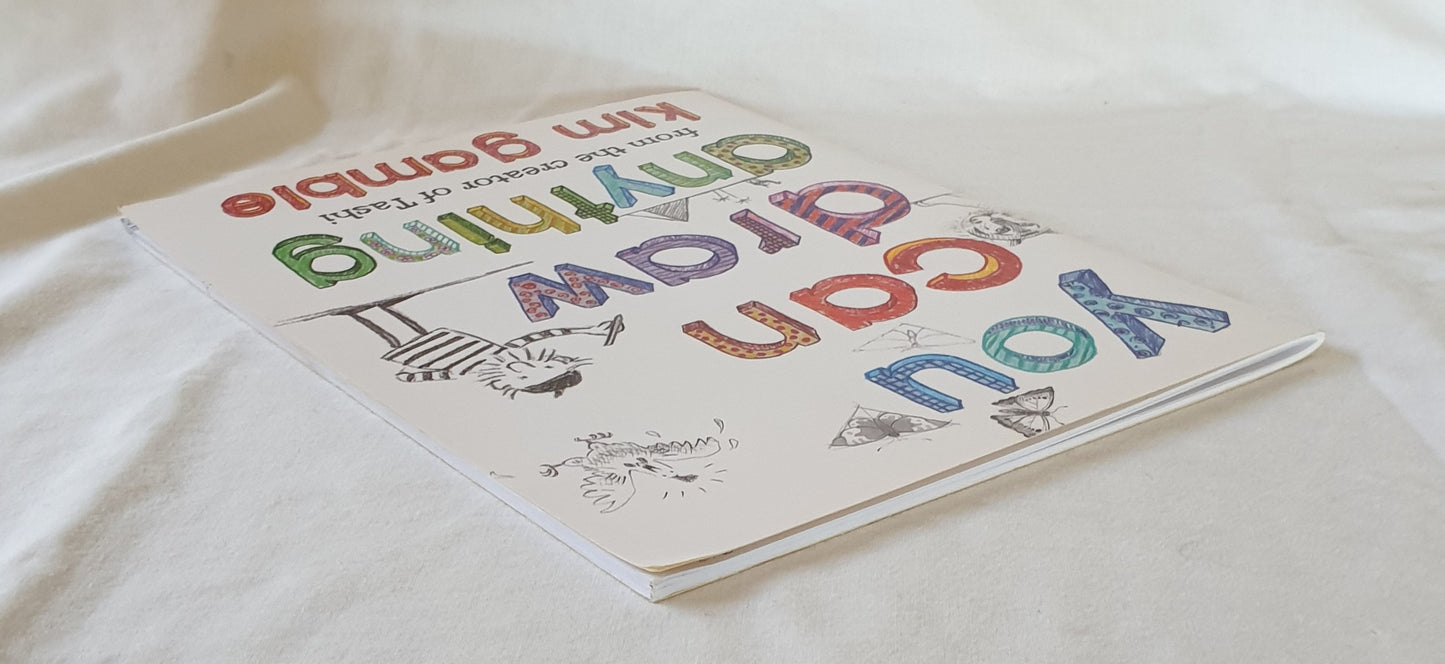 you
can
draw
anything
from the creator of Tashi
kim gamble